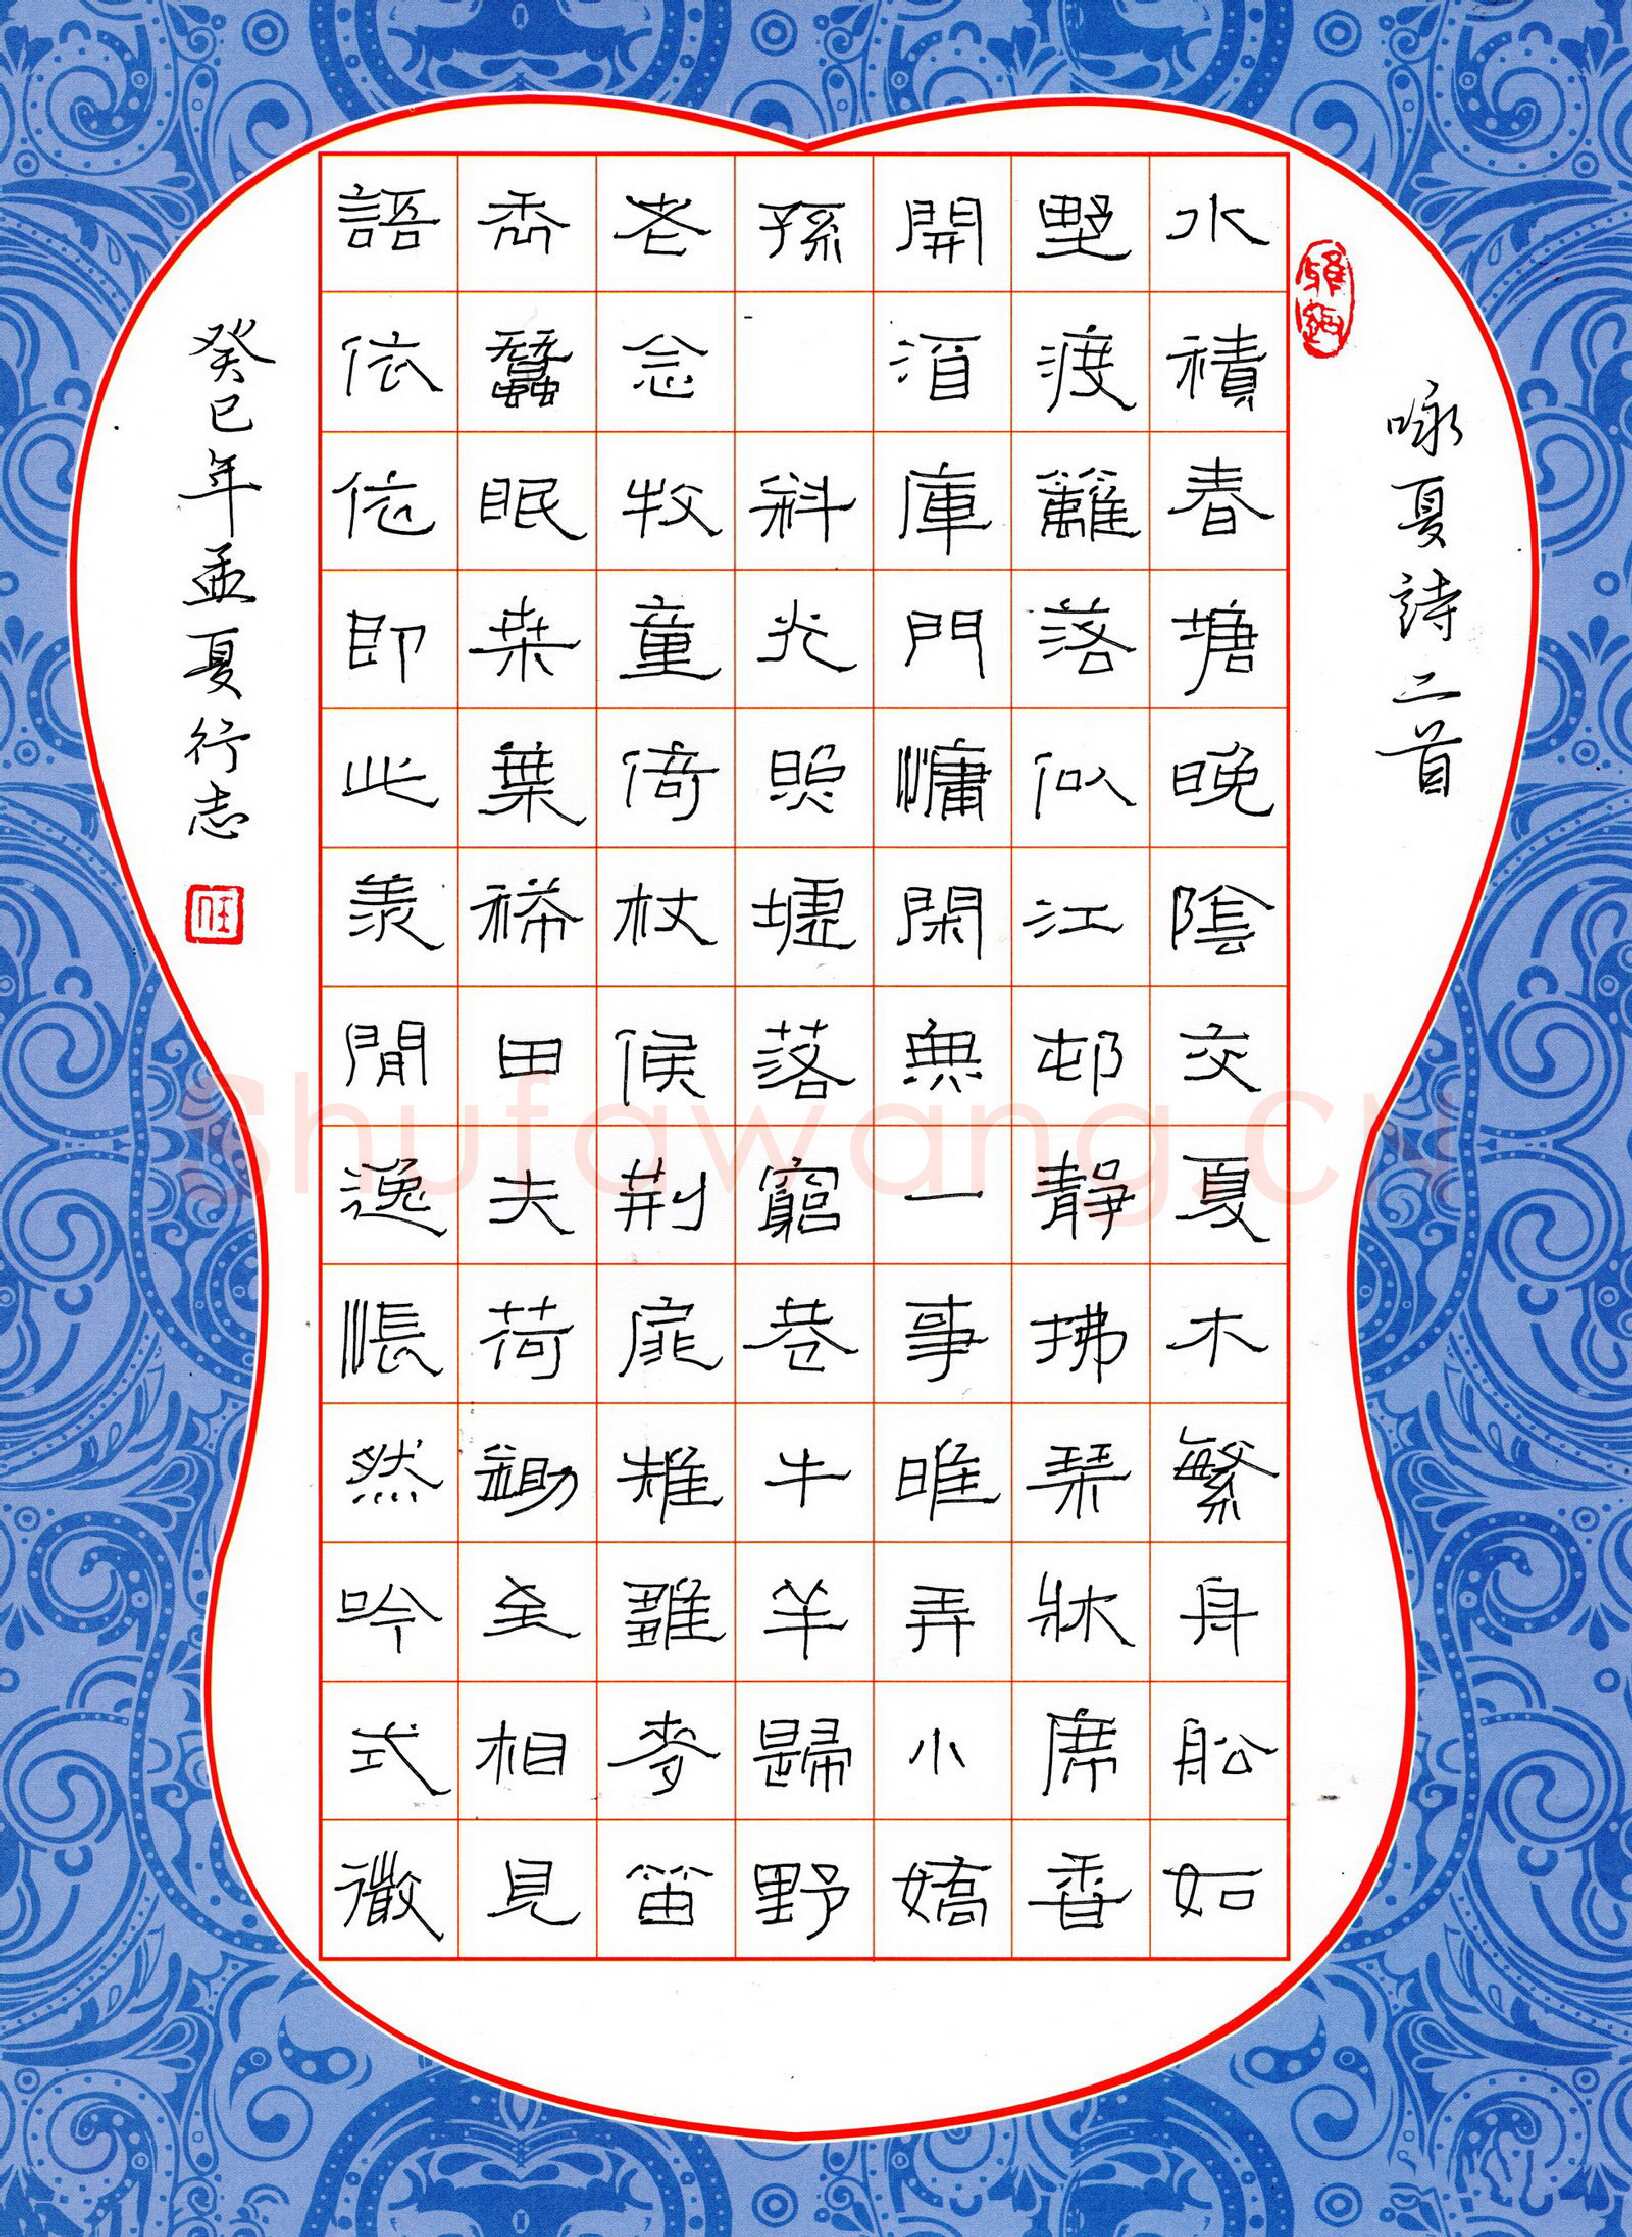 咏夏詩二首
水積春塘晚陰交夏木繁舟舩如
墅渡籬落似江邨靜拂琴牀席香
開酒庫門慵閑無一事唯弄小嬌
孫 斜光照墟落窮巷牛羊歸野
老念牧童倚杖候荊扉雉雊麥苗
秀蠶眠桑葉稀田夫荷鋤至相見
語依依即此羨閒逸悵然吟式微
癸巳年孟夏行志
Shufawang.CN